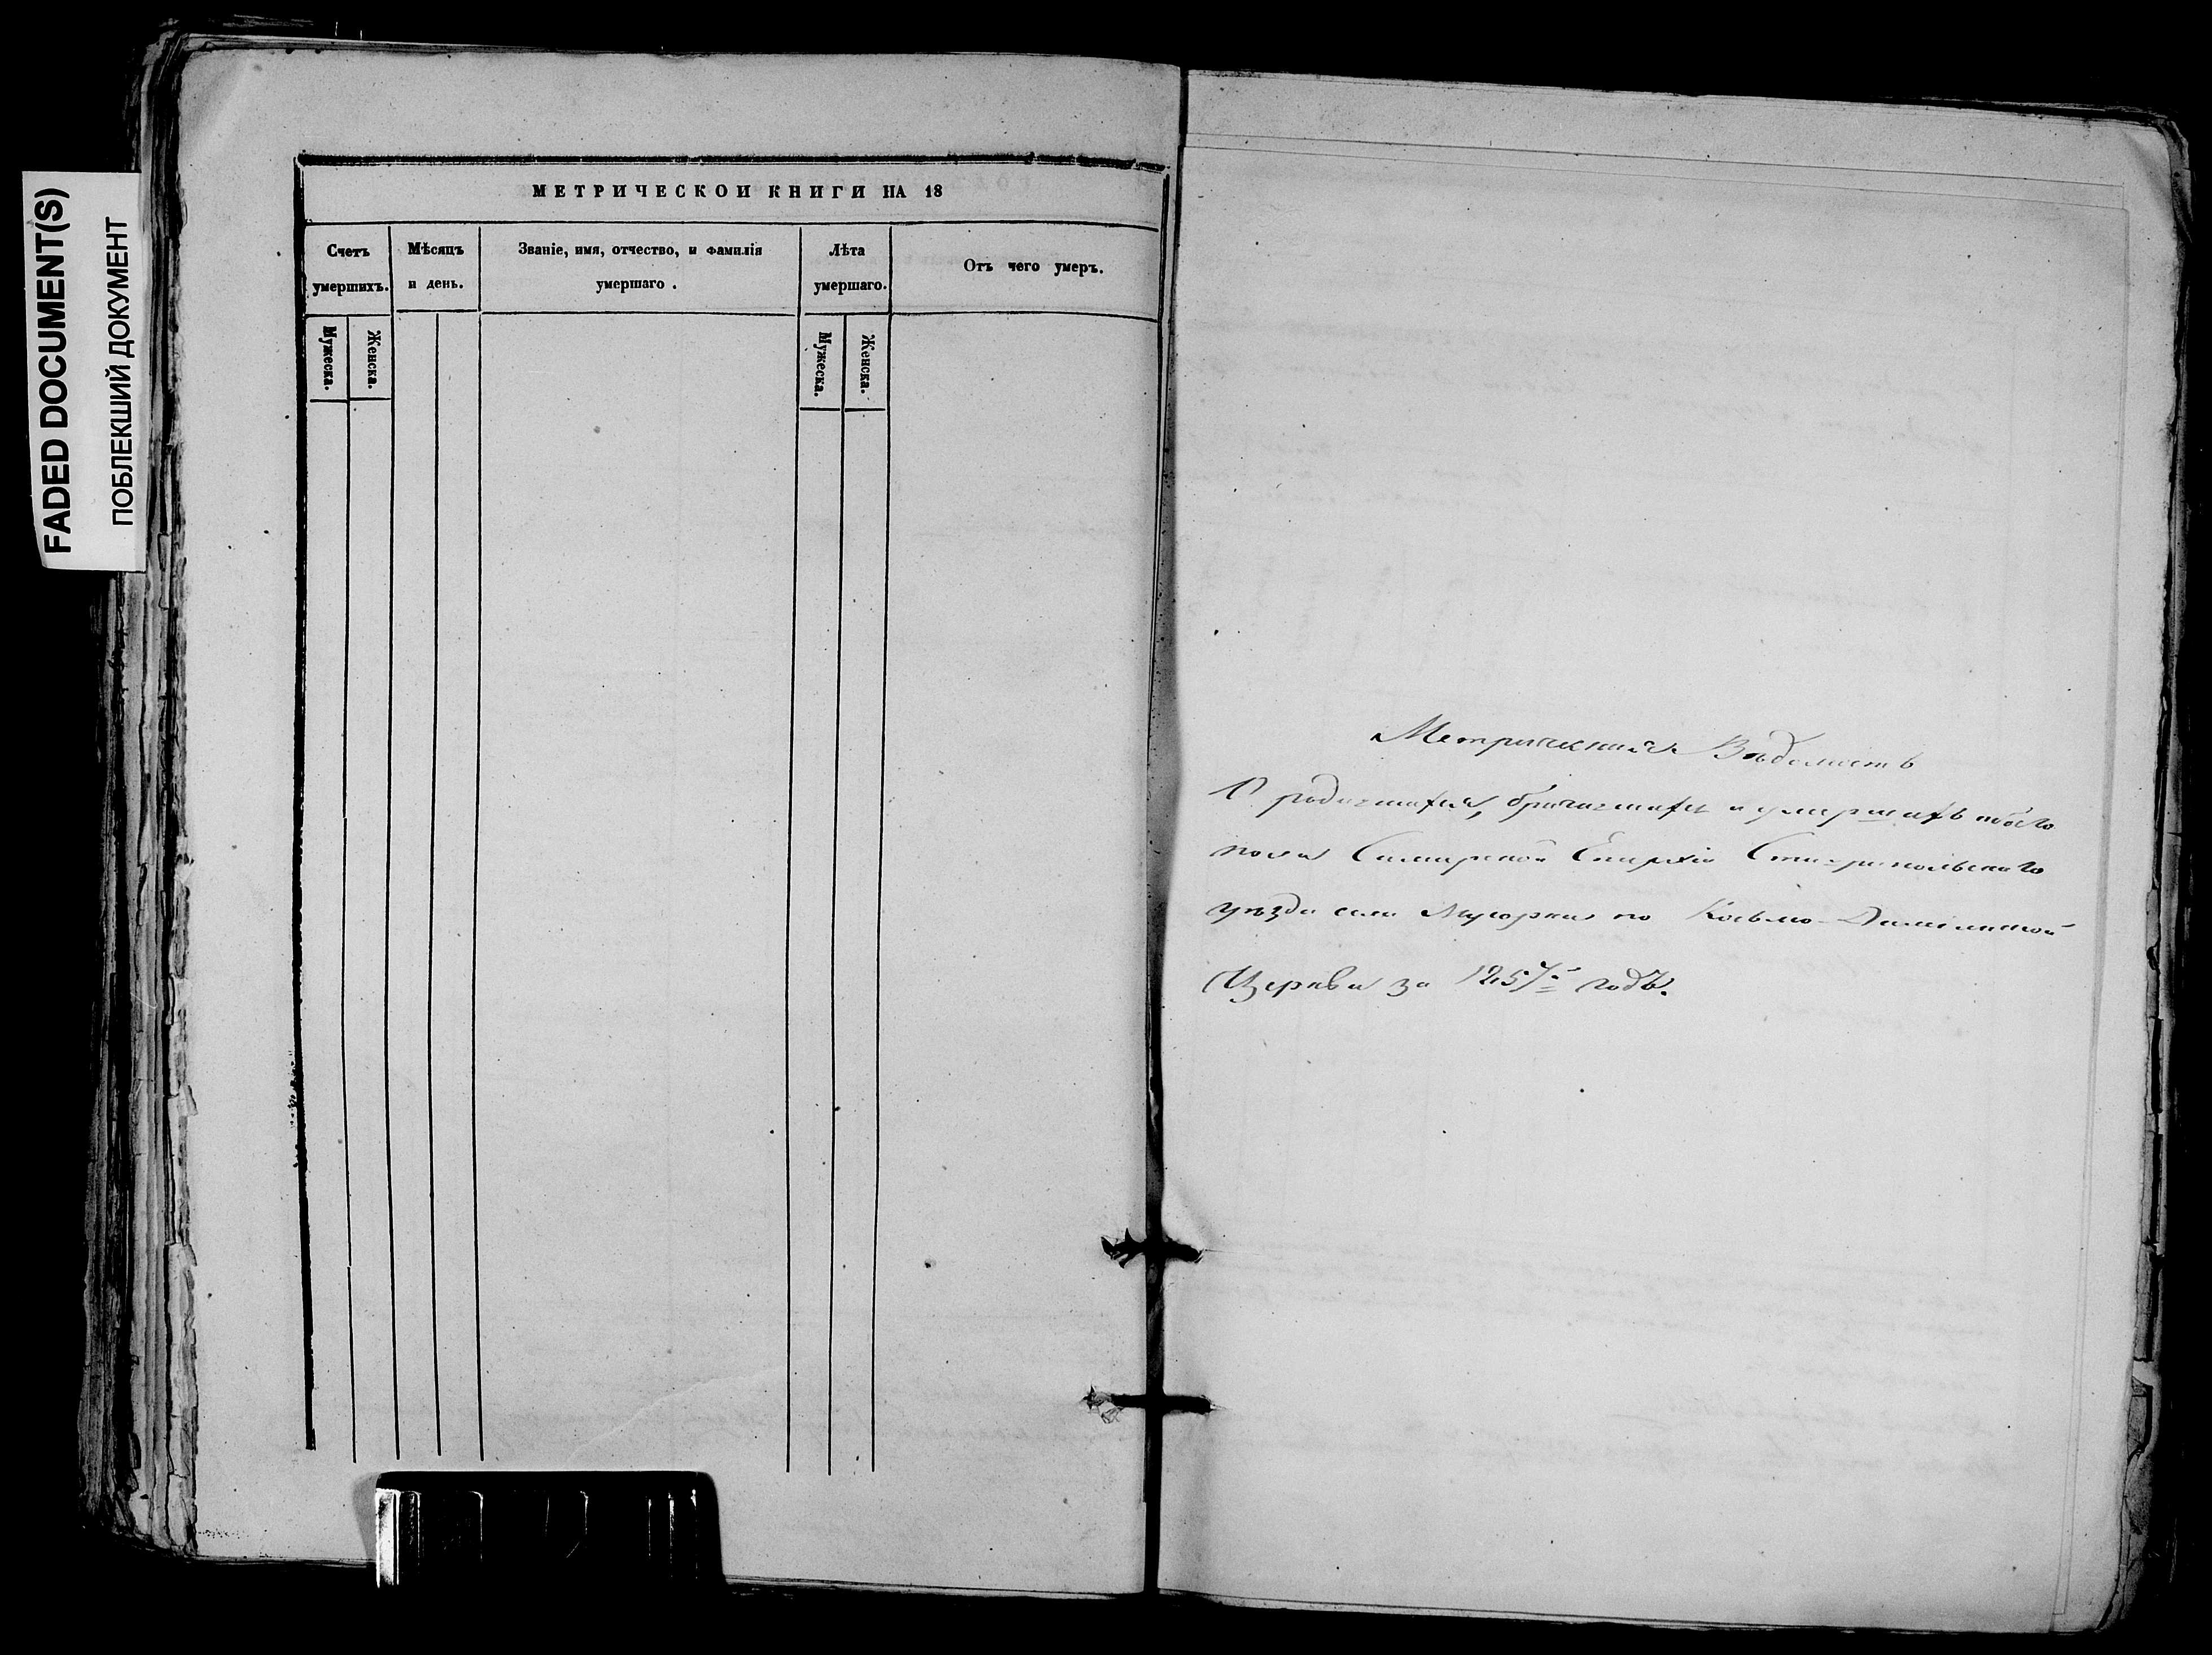 FADED DOCUMENT(S)
ПОБЛЕКШИЙ ДОКУМЕНТ
МЕТРИЧЕСКОЙ КНИГИ НА 18
Счетъ умершихъ.
Мѣсяцъ и день.
Званіе, имя, отчество, и фамилія умершаго.
Лѣта умершаго.
Отъ чего умеръ.
Мужеска.
Женска.
Мужеска.
Женска.
Метрическая Вѣдомость
О родившихся, бракившихся и умершихъ обоего
пола Самарской Епархіи Ставропольскаго
уѣзда села Мусорки по Косьмо-Даміанской
Церкви за 1857й годъ.